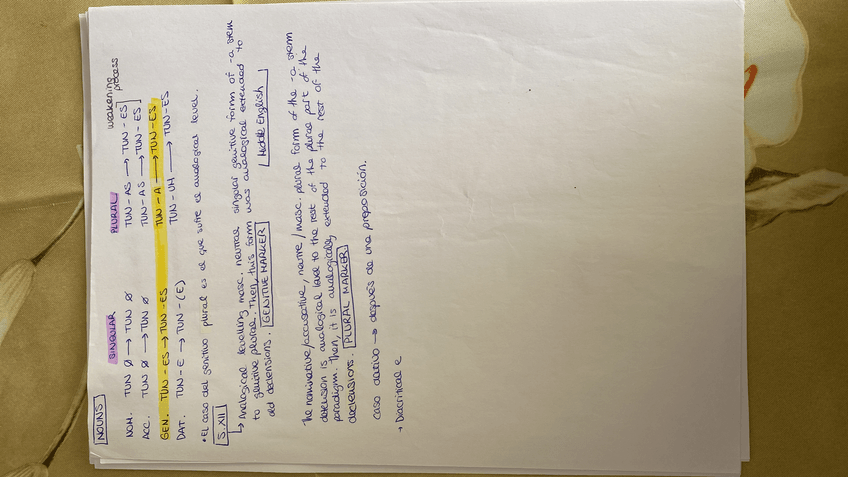 NOUNS
SINGULAR PLURAL weakening process
NOM. TUN Ø → TUN Ø TUN - AS → TUN - ES
ACC. TUN Ø → TUN Ø TUN - AS → TUN - ES
GEN. TUN - ES → TUN - ES TUN - A → TUN - ES
DAT. TUN - E → TUN - (E) TUN - UM → TUN - ES
• El caso del genitivo plural es el que sufre el analogical level.
S. XII
↳ Analogical levelling masc. neutral singular genitive form of -a stem
to genitive plural. Then, this form was analogical extended to
old declensions. GENITIVE MARKER Middle English
The nominative/accusative, neutre/masc. plural form of the -a stem
detension is analogical level to the rest of the plural part of the
paradigm. Then, it is analogically extended to the rest of the
declensions. PLURAL MARKER
caso dativo → después de una preposición.
→ Diacritical e